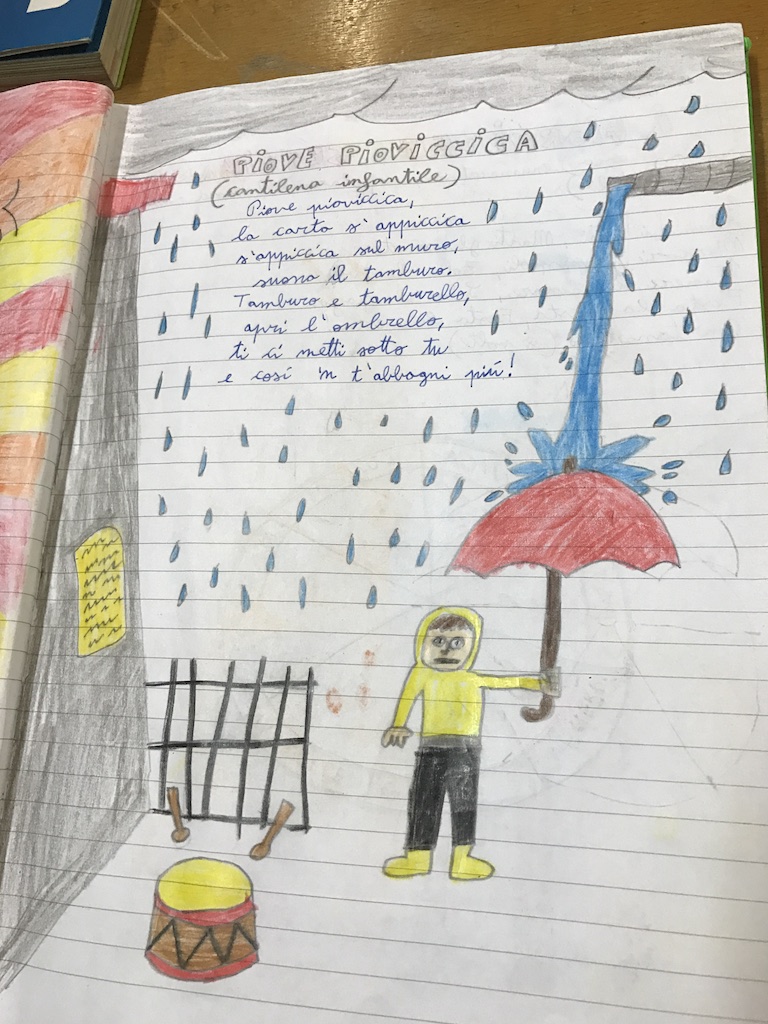 PIOVE PIOVICCICA
(cantilena infantile)
Piove pioviccica,
la carta s'appiccica
s'appiccica sul muro,
suona il tamburo.
Tamburo e tamburello,
apri l'ombrello,
ti ci metti sotto tu
e così 'n t'abbagni più!